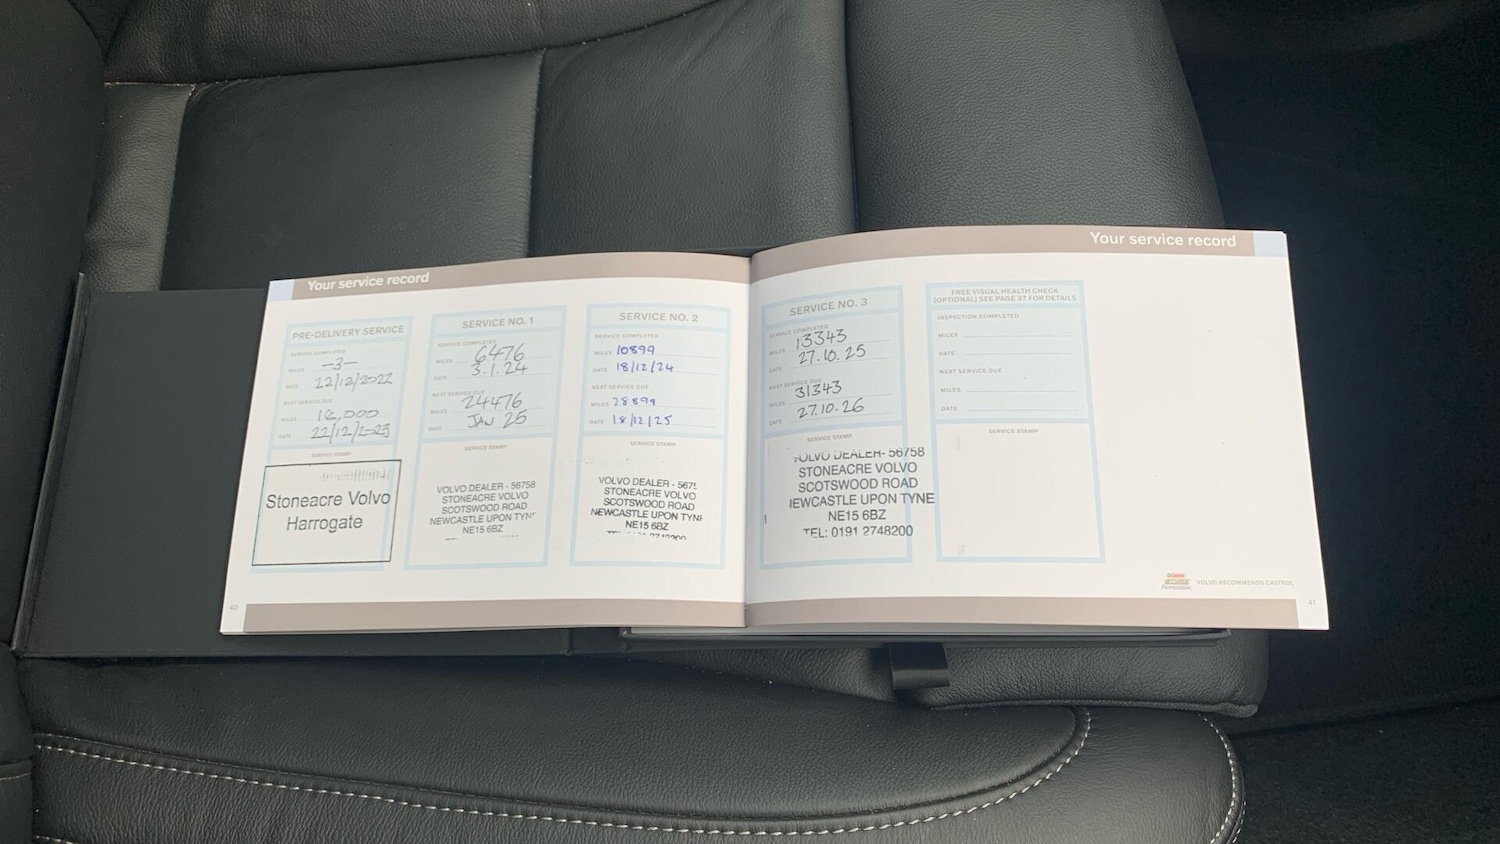 Your service record
PRE-DELIVERY SERVICE
SERVICE COMPLETED
MILES -3-
DATE 22/12/2022
NEXT SERVICE DUE
MILES 18,000
DATE 22/12/2023
SERVICE STAMP
Stoneacre Volvo
Harrogate
SERVICE NO. 1
SERVICE COMPLETED
MILES 6476
DATE 3.1.24
NEXT SERVICE DUE
MILES 24476
DATE JAN 25
SERVICE STAMP
VOLVO DEALER - 56758
STONEACRE VOLVO
SCOTSWOOD ROAD
NEWCASTLE UPON TYNE
NE15 6BZ
SERVICE NO. 2
SERVICE COMPLETED
MILES 10899
DATE 18/12/24
NEXT SERVICE DUE
MILES 28899
DATE 18/12/25
SERVICE STAMP
VOLVO DEALER - 5675
STONEACRE VOLVO
SCOTSWOOD ROAD
NEWCASTLE UPON TYN
NE15 6BZ
40
Your service record
SERVICE NO. 3
SERVICE COMPLETED
MILES 13343
DATE 27.10.25
NEXT SERVICE DUE
MILES 31343
DATE 27.10.26
SERVICE STAMP
VOLVO DEALER- 56758
STONEACRE VOLVO
SCOTSWOOD ROAD
NEWCASTLE UPON TYNE
NE15 6BZ
TEL: 0191 2748200
FREE VISUAL HEALTH CHECK
(OPTIONAL) SEE PAGE 37 FOR DETAILS
INSPECTION COMPLETED
MILES
DATE
NEXT SERVICE DUE
MILES
DATE
SERVICE STAMP
VOLVO RECOMMENDS CASTROL
41